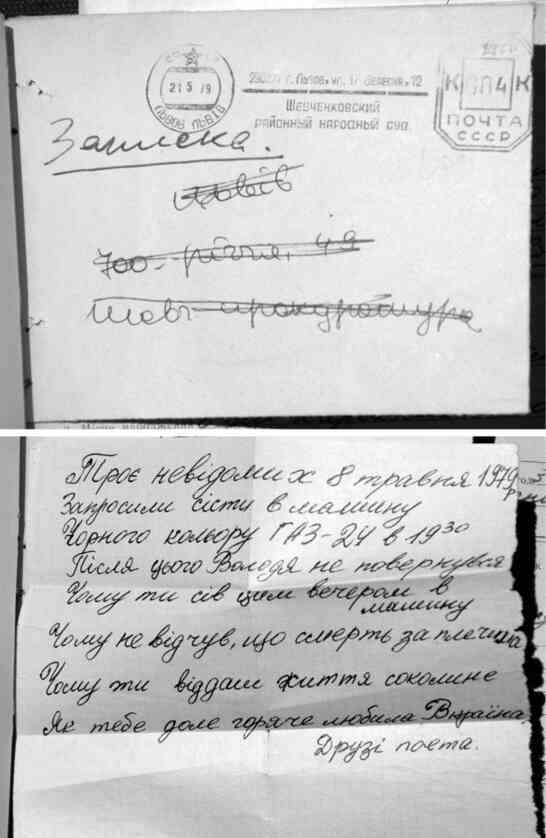 21 5 79
ЛЬВОВ ЛЬВІВ
г. Львов, ул. 17 Вересня, 12
ШЕВЧЕНКОВСКИЙ
РАЙОННЫЙ НАРОДНЫЙ СУД
К 04 К
ПОЧТА
СССР
Записка.
Львів
700-річчя, 49
Шевч прокуратура
Троє невідомих 8 травня 1979 р
Запросили сісти в машину
Чорного кольору ГАЗ-24 в 19 30
Після цього Володя не повернувся
Чому ти сів цим вечером в машину
Чому не відчув, що смерть за плечима
Чому ти віддав життя соколине
Як тебе доле горяче любила Вкраїна
Друзі поета.